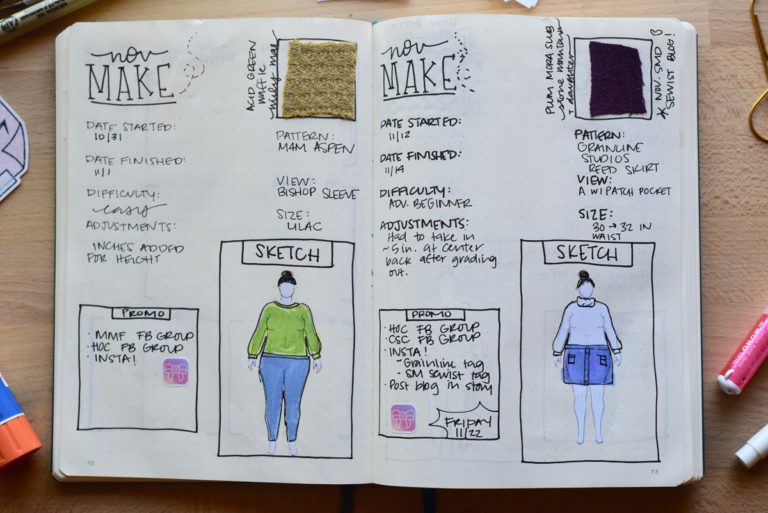 nov
MAKE
ACID GREEN
WAFFLE
DATE STARTED:
10/31
DATE FINISHED:
11/1
DIFFICULTY:
easy
ADJUSTMENTS:
INCHES ADDED
FOR HEIGHT
PATTERN:
M4M ASPEN
VIEW:
BISHOP SLEEVE
SIZE:
LILAC
SKETCH
PROMO
· MMF FB GROUP
· HOC FB GROUP
· INSTA!
72
nov
MAKE
PLUM MORA SLUB
stone mountain
+ daughter
* NOV. SMD
SEWIST BLOG!
DATE STARTED:
11/12
DATE FINISHED:
11/14
DIFFICULTY:
ADV. BEGINNER
ADJUSTMENTS:
Had to take in
~5in. at center
back after grading
out.
PATTERN:
GRAINLINE
STUDIOS
REED SKIRT
VIEW:
A W/ PATCH POCKET
SIZE:
30 → 32 IN
WAIST
SKETCH
PROMO
· HOC FB GROUP
· CSC FB GROUP
· INSTA!
- Grainline tag
· SM Sewist tag
· Post blog in story
FRIDAY
11/22
73